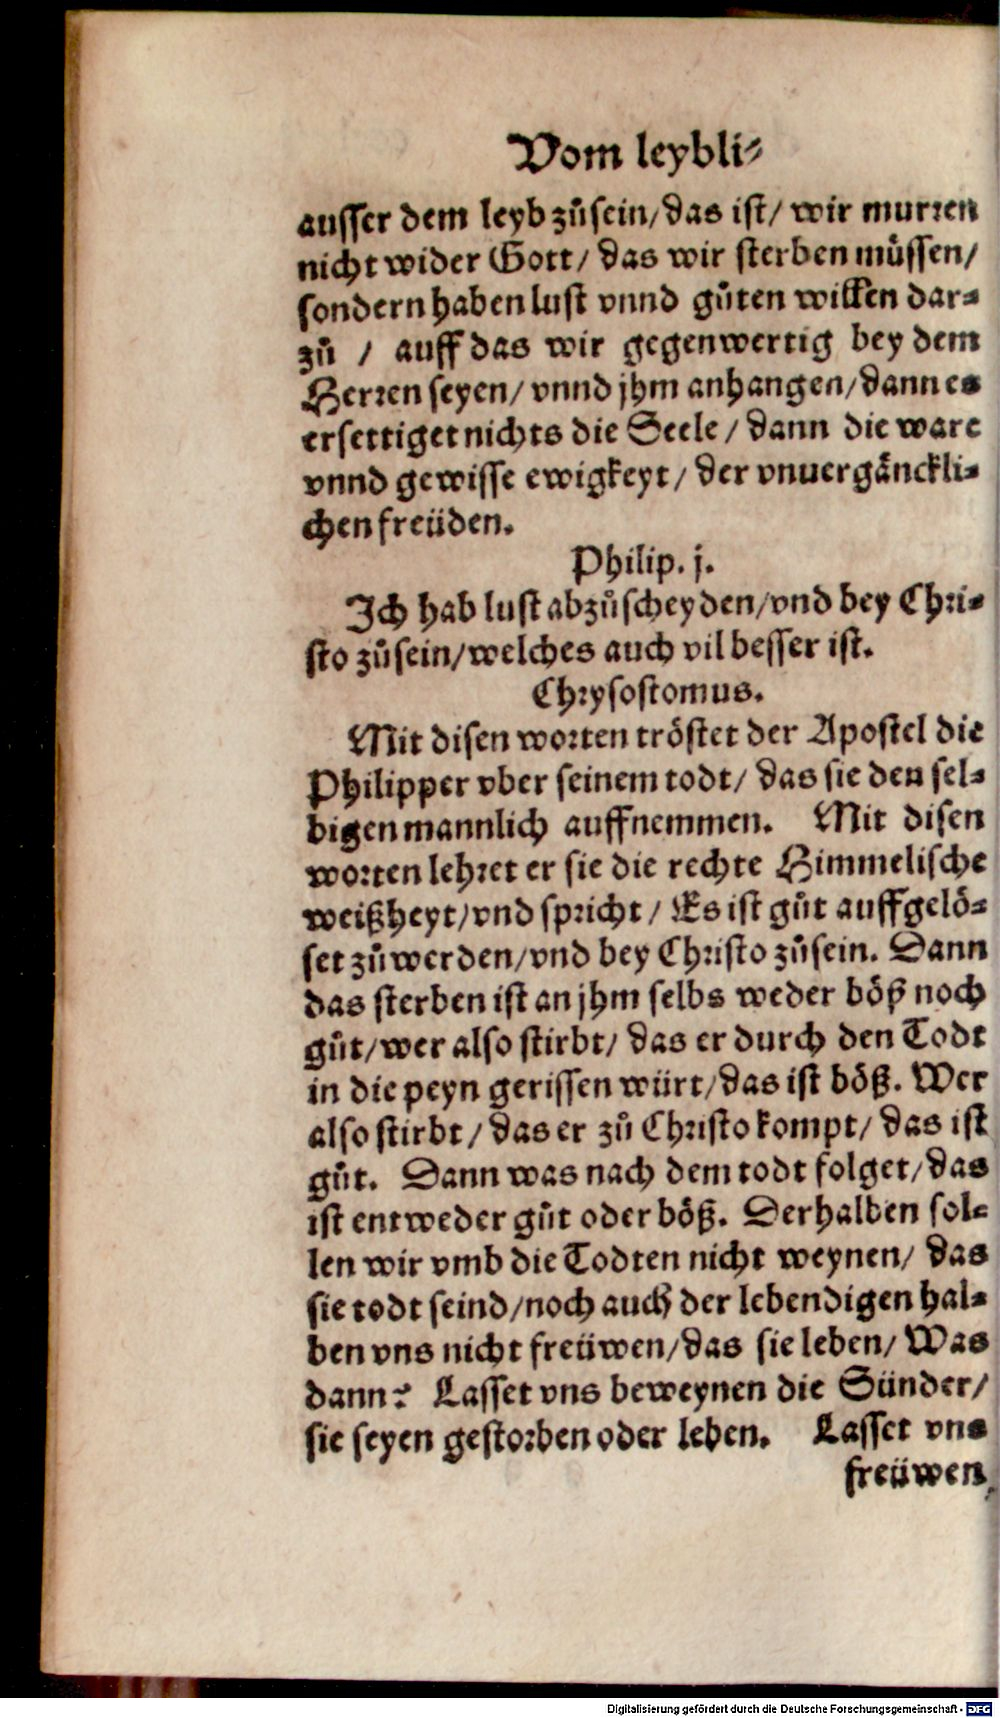 Vom leybli⸗
ausser dem leyb zůsein/das ist/ wir murren
nicht wider Gott/ das wir sterben müssen/
sondern haben lust vnnd gůten willen dar⸗
zů / auff das wir gegenwertig bey dem
Herren seyen/ vnnd jhm anhangen/dann es
ersettiget nichts die Seele/ dann die ware
vnnd gewisse ewigkeyt/ der vnuergänckli⸗
chen freüden.
Philip. j.
Ich hab lust abzůscheyden/vnd bey Chri⸗
sto zůsein/welches auch vil besser ist.
Chrysostomus.
Mit disen worten tröstet der Apostel die
Philipper vber seinem todt/ das sie den sel⸗
bigen mannlich auffnemmen. Mit disen
worten lehret er sie die rechte Himmelische
weißheyt/vnd spricht/ Es ist gůt auffgelö⸗
set zůwerden/vnd bey Christo zůsein. Dann
das sterben ist an jhm selbs weder böß noch
gůt/wer also stirbt/ das er durch den Todt
in die peyn gerissen würt/das ist böß. Wer
also stirbt/das er zů Christo kompt/ das ist
gůt. Dann was nach dem todt folget/das
ist entweder gůt oder böß. Derhalben sol⸗
len wir vmb die Todten nicht weynen/ das
sie todt seind/noch auch der lebendigen hal⸗
ben vns nicht freüwen/das sie leben/ Was
dann? Lasset vns beweynen die Sünder/
sie seyen gestorben oder leben. Lasset vns
freüwen
Digitalisierung gefördert durch die Deutsche Forschungsgemeinschaft - DFG